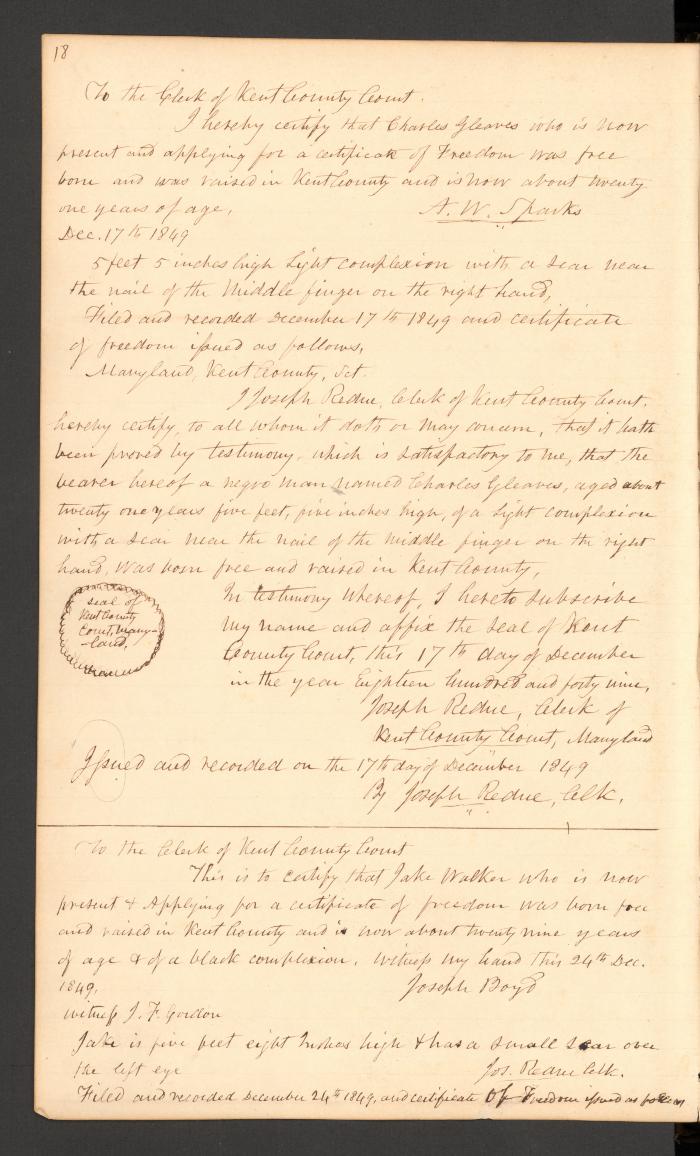 18
To the Clerk of Kent County Court.
I hereby certify that Charles Gleaves who is now
present and applying for a certificate of Freedom was free
born and was raised in Kent County and is now about twenty
one years of age,
A. W. Sparks
Dec. 17th 1849
5 feet 5 inches high Light complexion with a scar near
the nail of the middle finger on the right hand,
Filed and recorded December 17th 1849 and certificate
of freedom issued as follows,
Maryland, Kent County, Sct.
I Joseph Redue, Clerk of Kent County Court,
hereby certify, to all whom it doth or may concern, that it hath
been proved by testimony, which is satisfactory to me, that the
bearer hereof a negro man named Charles Gleaves, aged about
twenty one years five feet, five inches high, of a light complexion
with a scar near the nail of the middle finger on the right
hand, was born free and raised in Kent County,
seal of
Kent County
Court, Mary-
-land,
In testimony whereof, I hereto subscribe
my name and affix the seal of Kent
County Court, this 17th day of December
in the year Eighteen hundred and forty nine,
Joseph Redue, Clerk of
Kent County Court, Maryland
Issued and recorded on the 17th day of December 1849
By Joseph Redue, Clk.
To the Clerk of Kent County Court
This is to certify that Jake Walker who is now
present & Applying for a certificate of freedom was born free
and raised in Kent County and is now about twenty nine years
of age & of a black complexion. Witness my hand this 24th Dec.
1849.
Joseph Boyd
witness J. F. Gordon
Jake is five feet eight Inches high & has a small scar over
the left eye
Jos. Redue Clk.
Filed and recorded December 24th 1849, and certificate of Freedom issued as follows